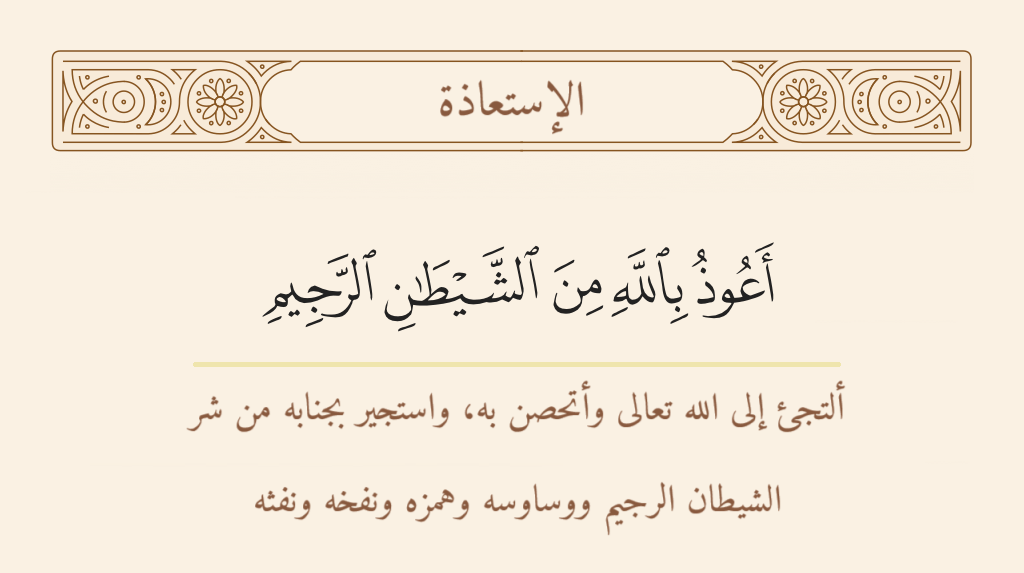 الإستعاذة
أَعُوذُ بِٱللَّهِ مِنَ ٱلشَّيْطَٰنِ ٱلرَّجِيمِ
ألتجئ إلى الله تعالى وأتحصن به، واستجير بجنابه من شر
الشيطان الرجيم ووساوسه وهمزه ونفخه ونفثه